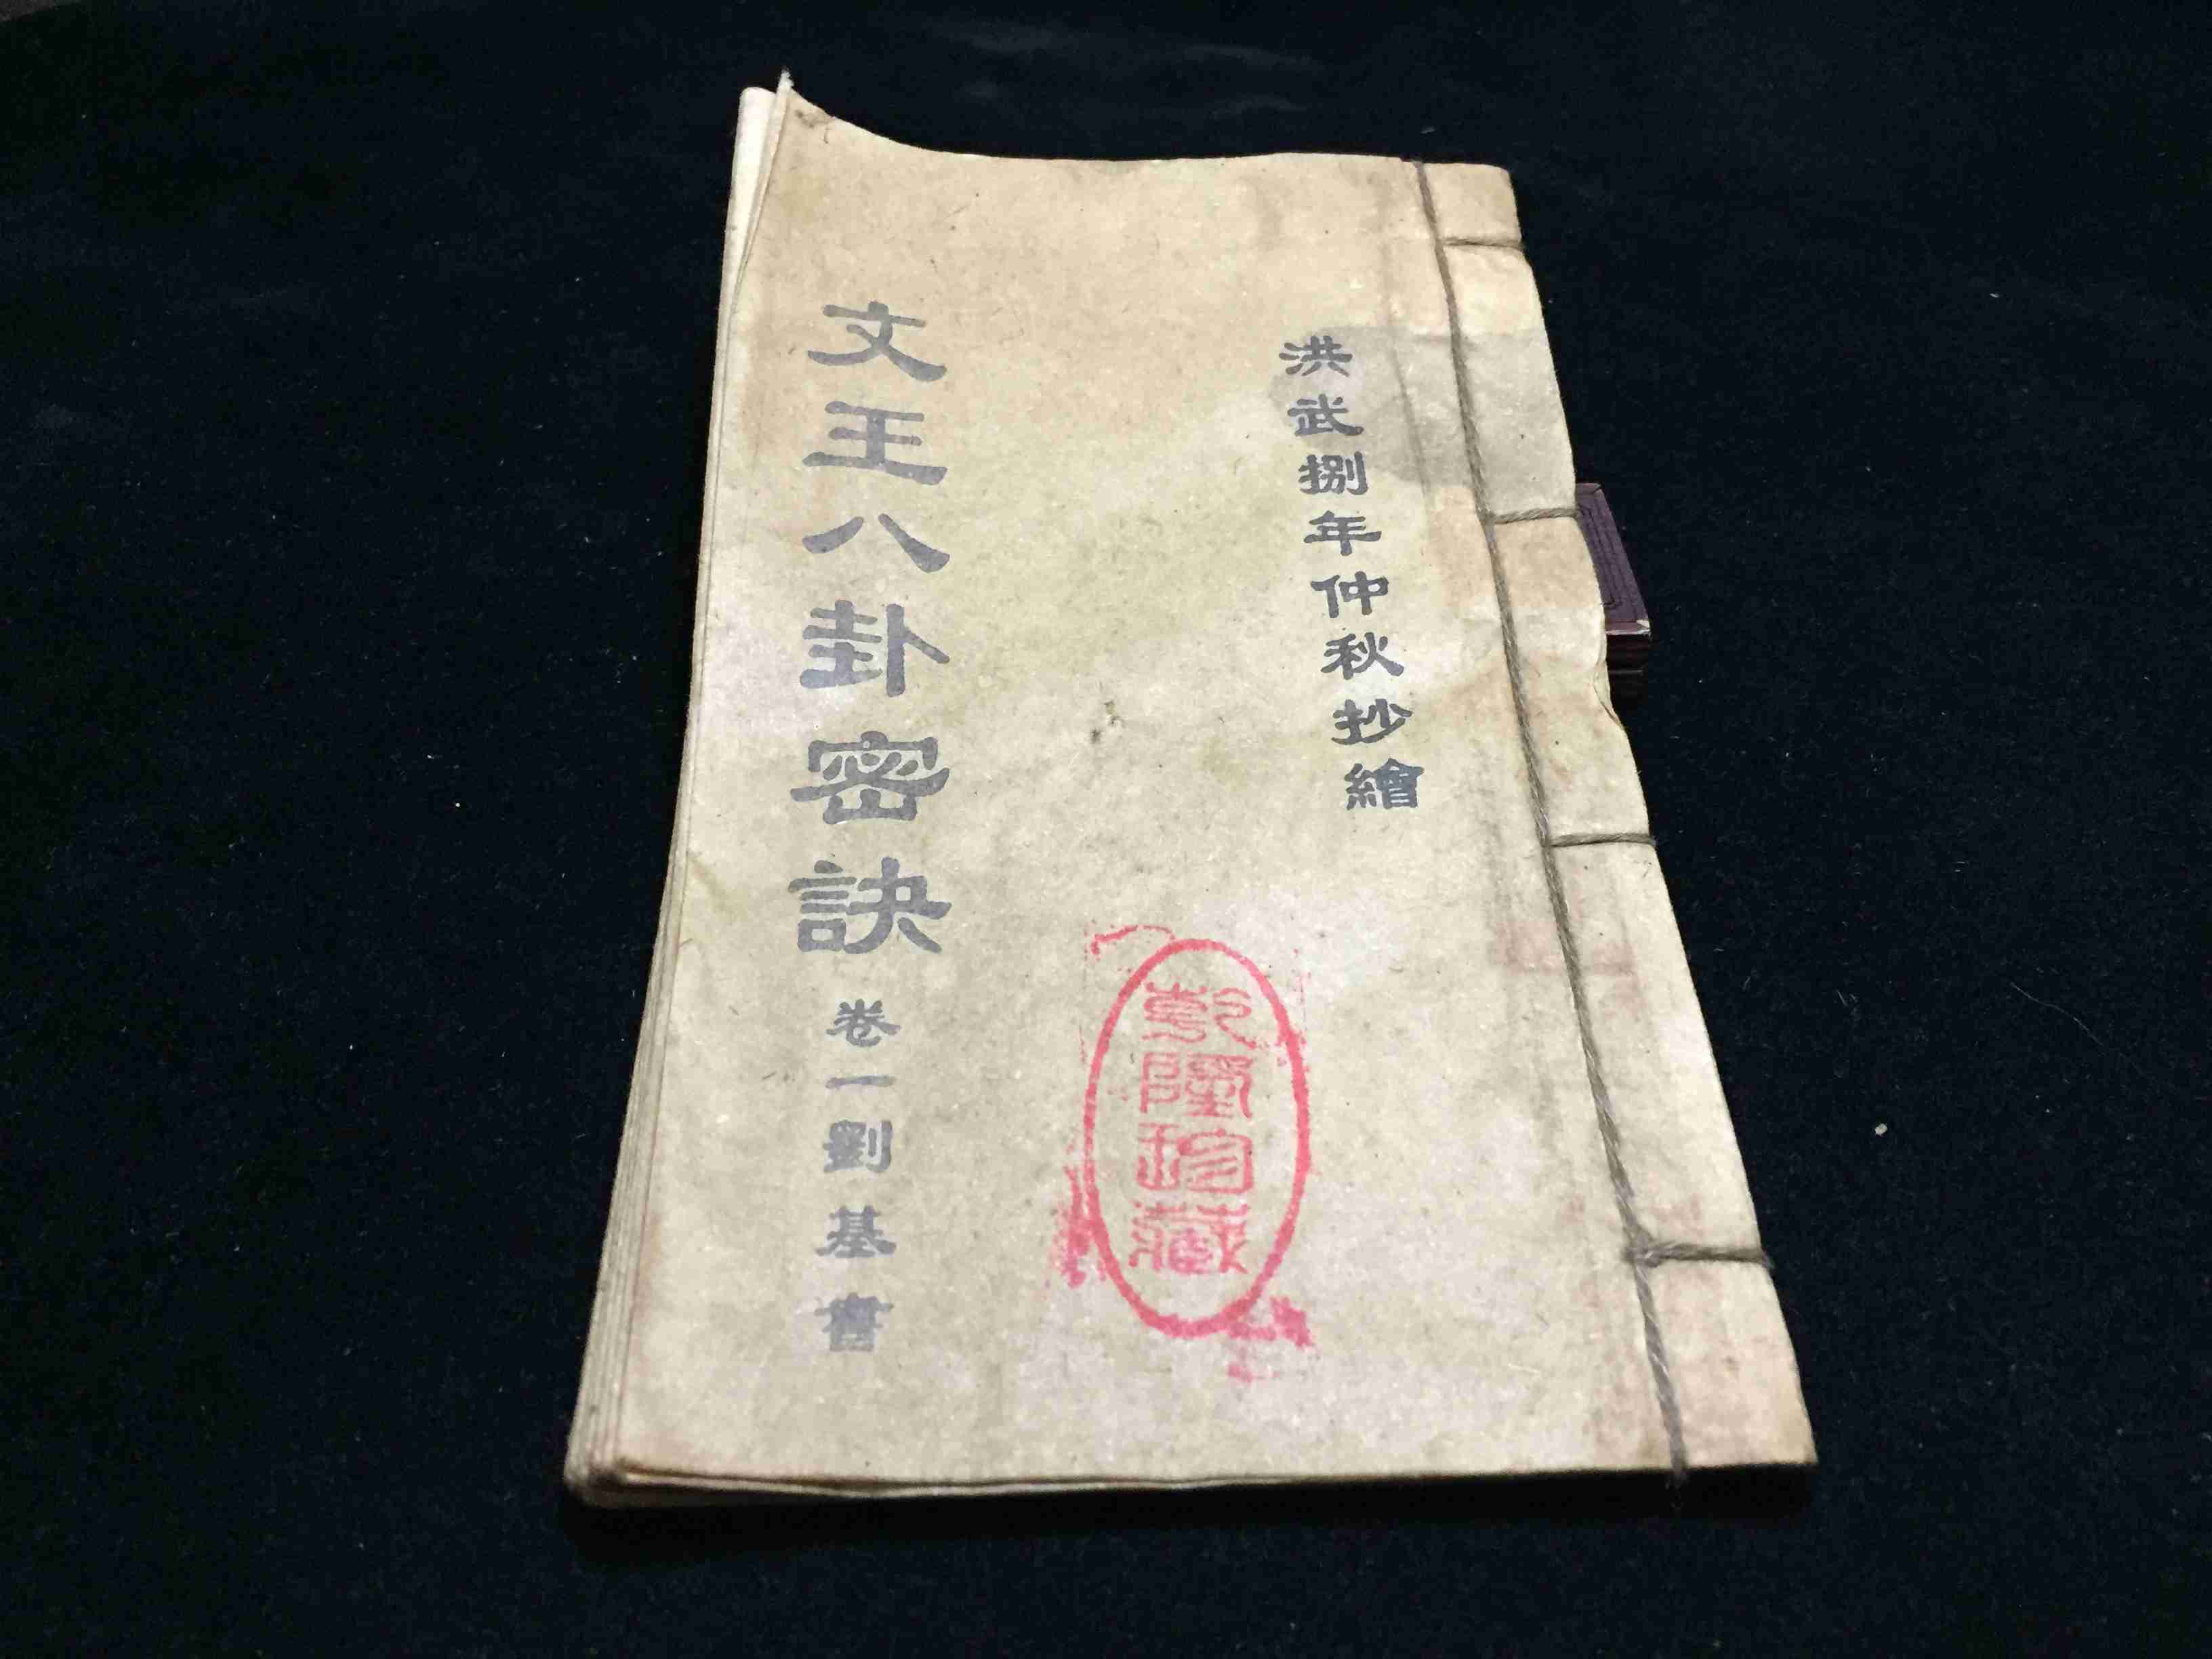 洪武捌年仲秋抄繪
文王八卦密訣 卷一劉基書
乾隆珍藏